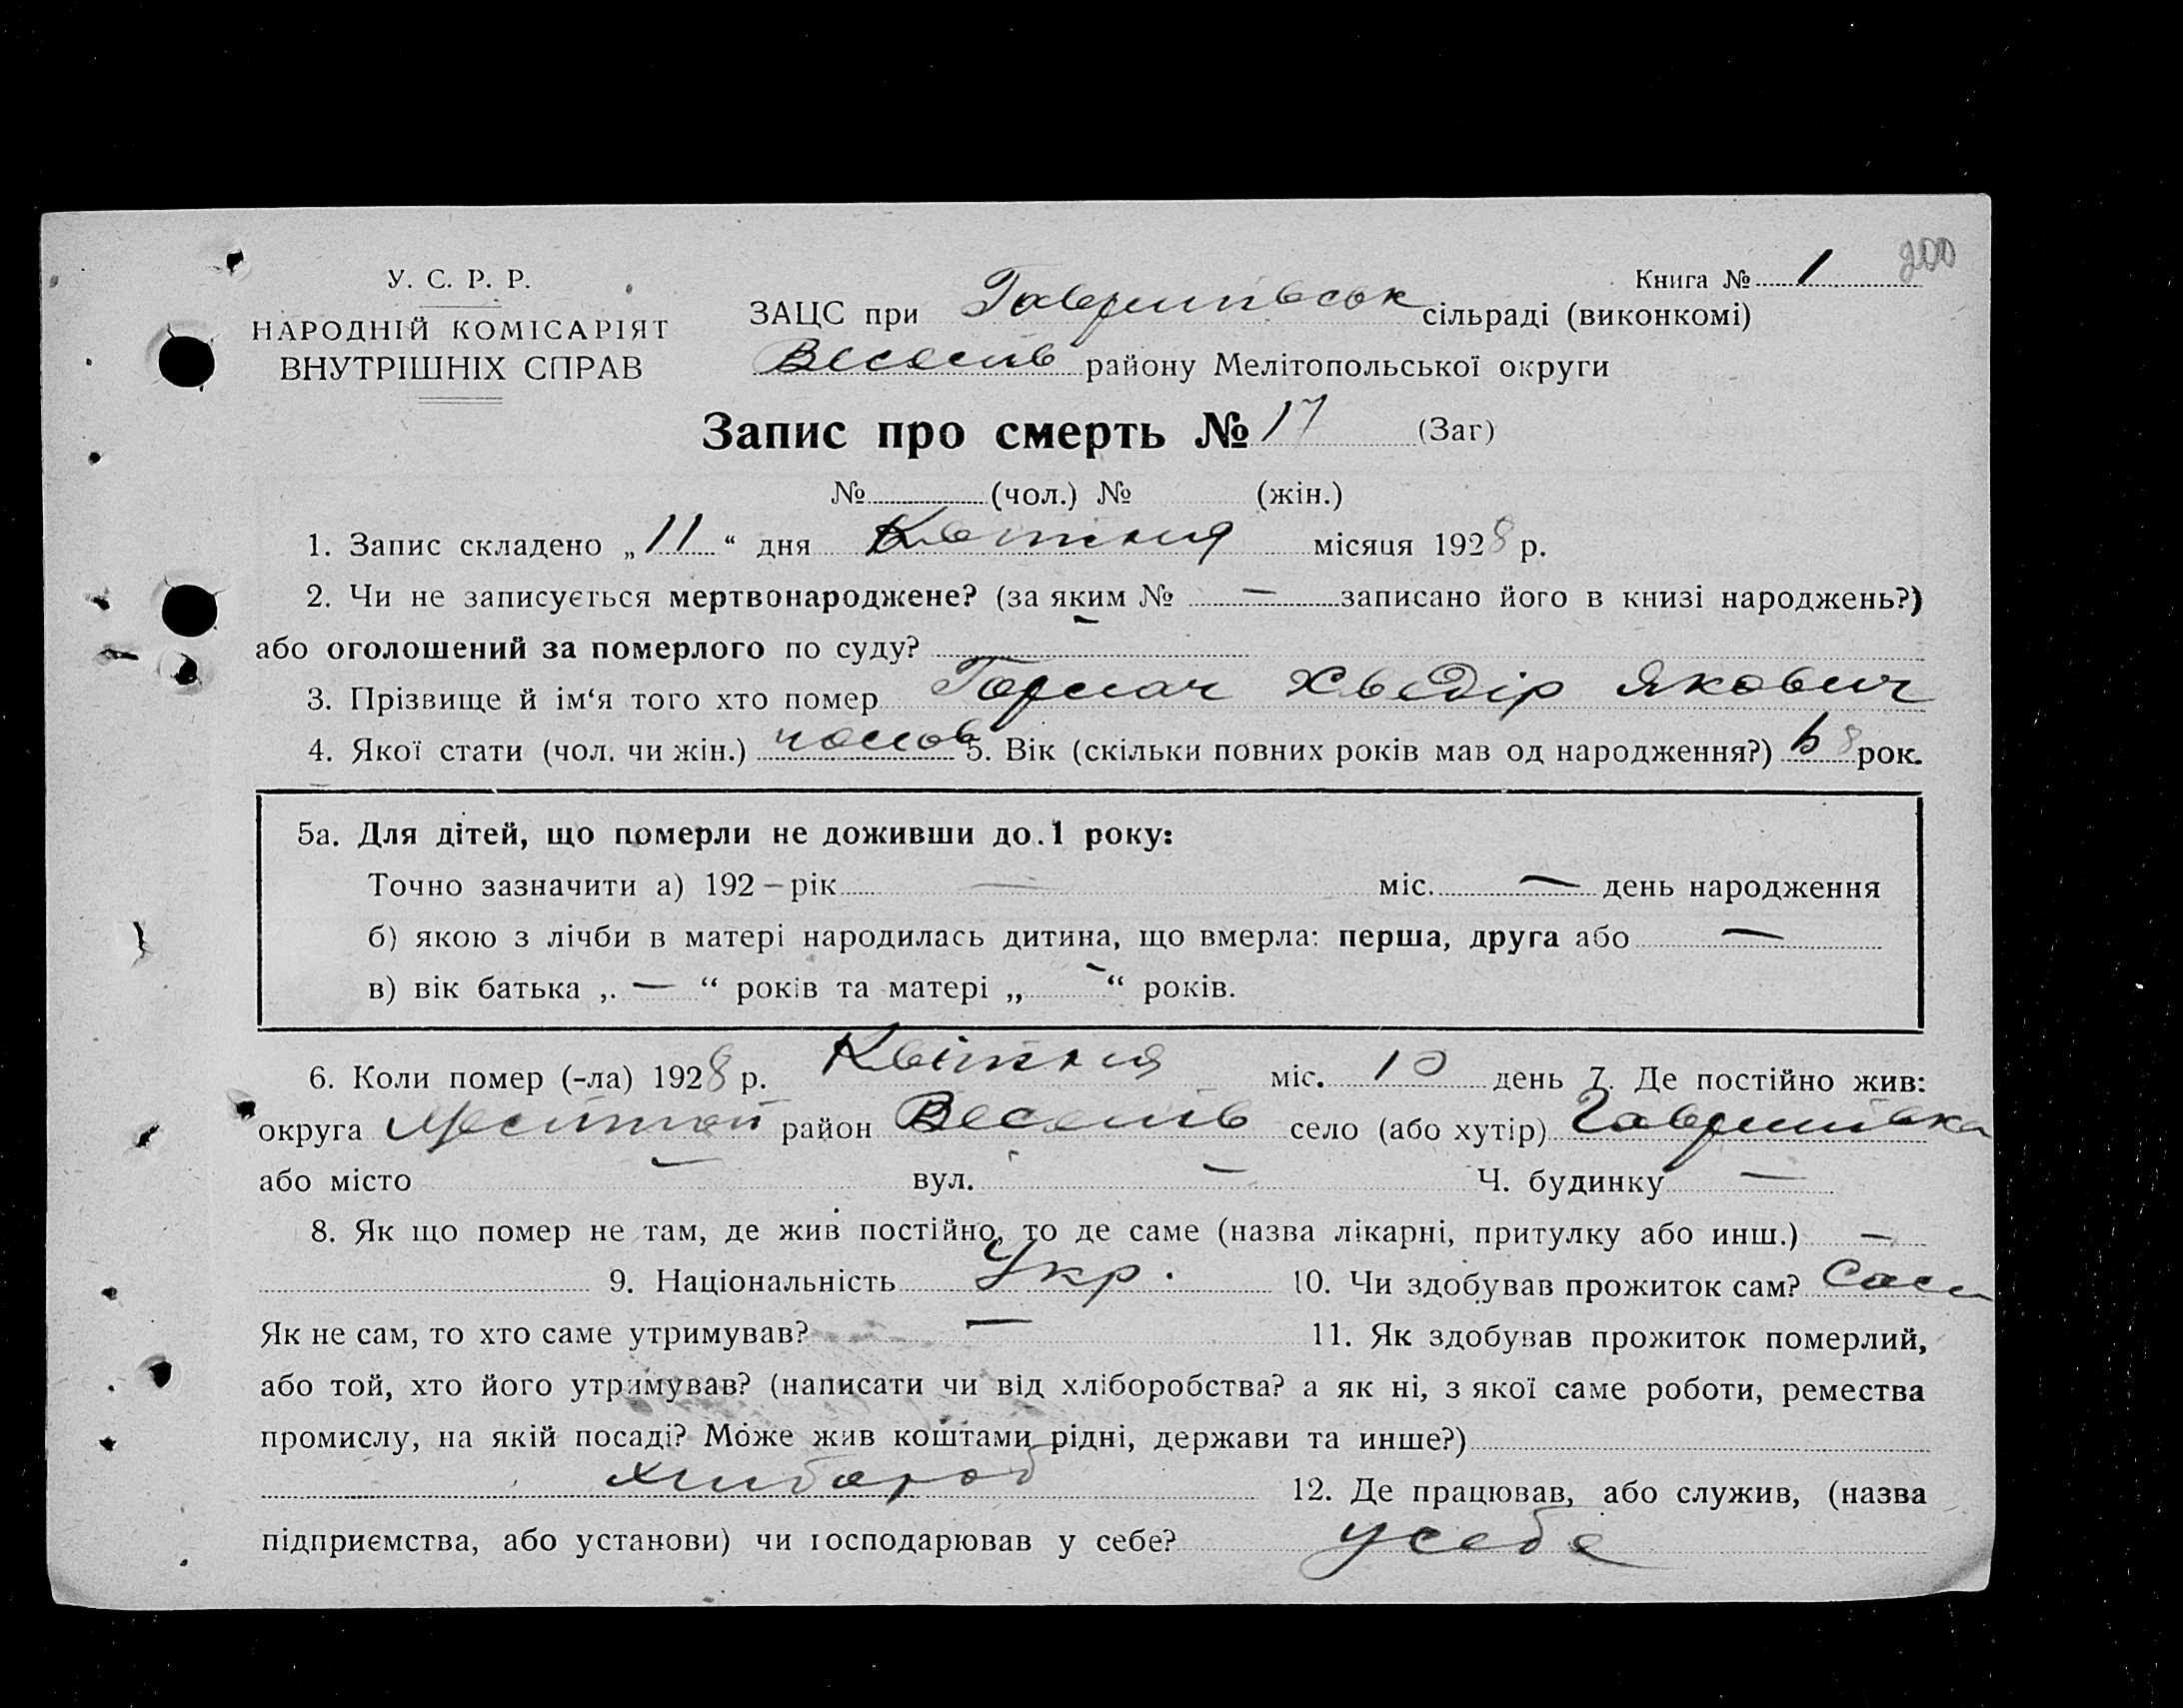 200
Книга № 1
У. С. Р. Р.
НАРОДНІЙ КОМІСАРІЯТ
ВНУТРІШНІХ СПРАВ
ЗАЦС при Гаврилівськ сільраді (виконкомі)
Веселів району Мелітопольської округи
Запис про смерть № 17 (Заг)
№ (чол.) № (жін.)
1. Запис складено „11“ дня Квітня місяця 1928 р.
2. Чи не записується мертвонароджене? (за яким № — записано його в книзі народжень?)
або оголошений за померлого по суду? —
3. Прізвище й ім‘я того хто помер Хведір Якович
4. Якої стати (чол. чи жін.) 5. Вік (скільки повних років мав од народження?) 68 рок.
5а. Для дітей, що померли не доживши до 1 року:
Точно зазначити а) 192 – рік — міс. — день народження
б) якою з лічби в матері народилась дитина, що вмерла: перша, друга або —
в) вік батька „ — “ років та матері „ — “ років.
6. Коли помер (-ла) 1928 р. Квітня міс. 10 день 7. Де постійно жив:
округа район Веселів село (або хутір) Гаврилівка
або місто — вул. — Ч. будинку —
8. Як що помер не там, де жив постійно, то де саме (назва лікарні, притулку або инш.) —
9. Національність Укр. 10. Чи здобував прожиток сам? Сам
Як не сам, то хто саме утримував? — 11. Як здобував прожиток померлий,
або той, хто його утримував? (написати чи від хліборобства? а як ні, з якої саме роботи, ремества
промислу, на якій посаді? Може жив коштами рідні, держави та инше?)
хлибороб 12. Де працював, або служив, (назва
підприємства, або установи) чи господарював у себе? у себе